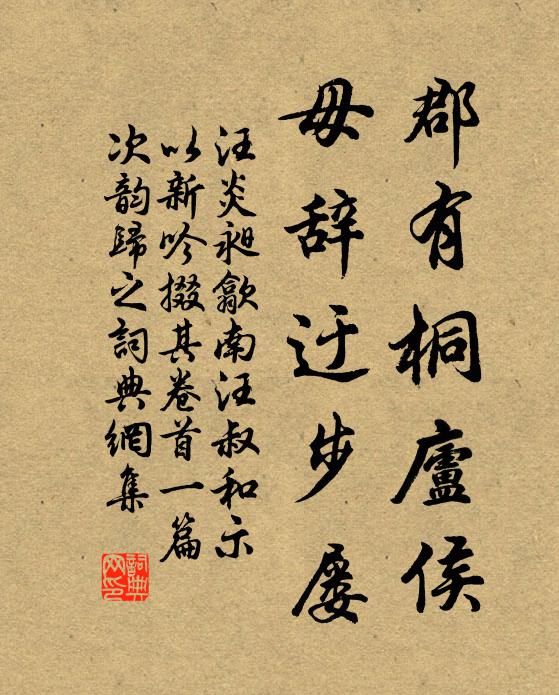 郡有桐廬侯
毋辞迂步屡
汪炎昶歙南汪叔和示
以新吟掇其卷首一篇
次韵歸之詞典網集
詞典网印